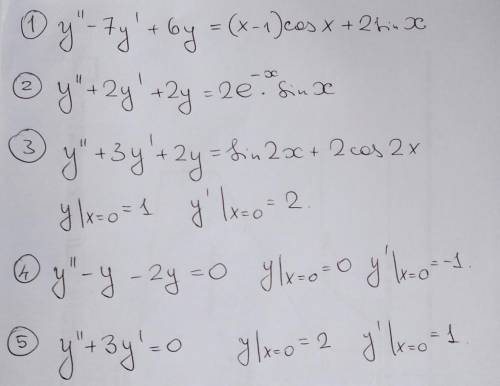 ① y'' - 7y' + 6y = (x-1)cosx + 2sinx
② y'' + 2y' + 2y = 2e^{-x} · sinx
③ y'' + 3y' + 2y = sin2x + 2cos2x
y|x=0 = 1 y'|x=0 = 2.
④ y'' - y - 2y = 0 y|x=0 = 0 y'|x=0 = -1.
⑤ y'' + 3y' = 0 y|x=0 = 2 y'|x=0 = 1.